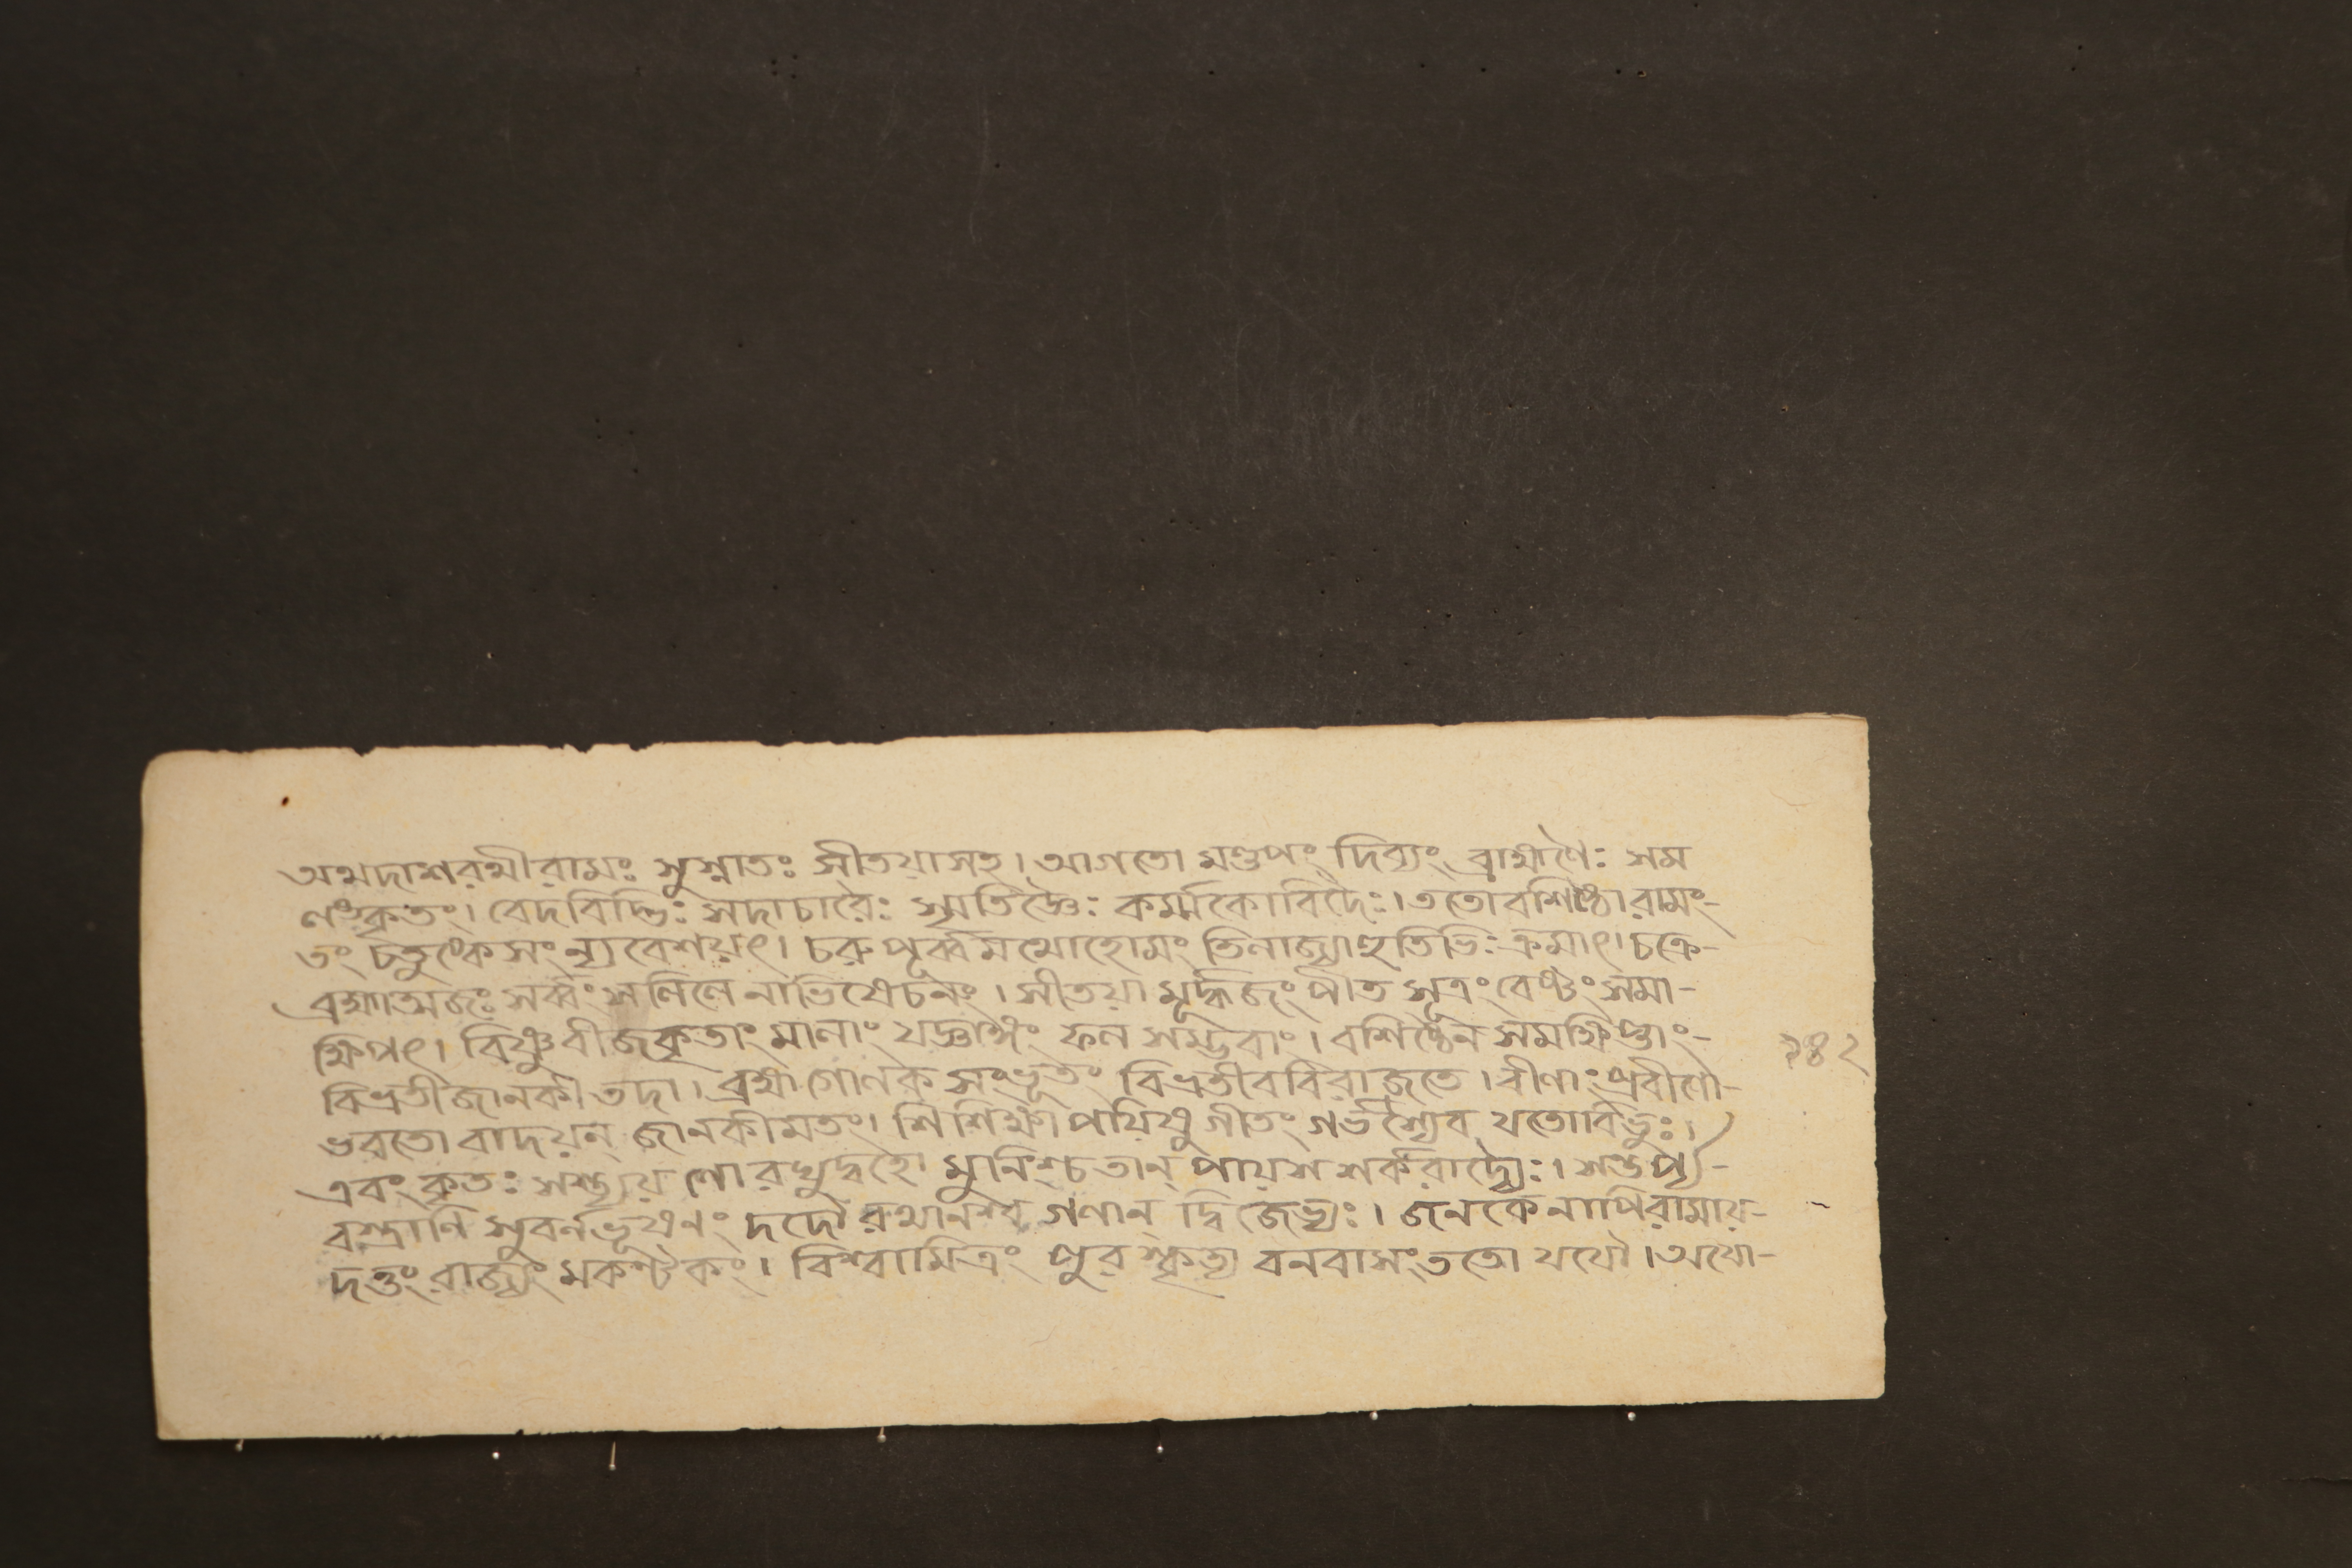 অথদাশরথীরামঃ সুস্নাতঃ সীতয়াসহ। আগতো মণ্ডপং দিব্যং ব্রাহ্মণৈঃ সম
লংকৃতং। বেদবিদ্ভিঃ সদাচারৈঃ স্মৃতিজ্ঞৈঃ কর্ম্মকোবিদৈঃ। ততোবশিষ্ঠোরামং-
তং চতুষ্কেসং ন্যবেশয়ৎ। চরুপূর্ব্বমথোহোমং তিলাজ্যাহুতিভিঃ ক্রমাৎ। চক্রে-
ব্রহ্মাত্মজঃ সর্ব্বং সলিলেনাভিষেচনং। সীতয়া মূর্দ্ধজং পীত সূত্রং বেষ্ঠং সমা-
ক্ষিপৎ। বিষ্ণুবীজকৃতাং মালাং যজ্ঞাঙ্গং ফল সম্ভবাং। বশিষ্ঠেন সমক্ষিপ্তাং-
বিভ্রতীজানকী তদা। ব্রহ্মগোলক সংভূতং বিভ্রতীববিরাজতে। বীণাং প্রবীণো-
ভরতো বাদয়ন্ জানকীমতং। শিশিক্ষাপয়িষু গীতং গর্ভস্থৈব যতোবিভুঃ।
এবং কৃতঃ স্বস্ত্যয় নো রঘুদ্বহো মুনিংশ্চতান্ পায়স শর্করাদ্যৈঃ। সন্তর্প্য-
বস্ত্রাণি সুবর্নভূষণং দদৌ রথানশ্ব গণান্ দ্বিজেভ্যঃ। জনকেনাপিরামায়-
দত্তং রাজ্যং মকণ্টকং। বিশ্বামিত্রং পুরস্কৃত্য বনবাসং ততো যযৌ। অযো-
২৪২